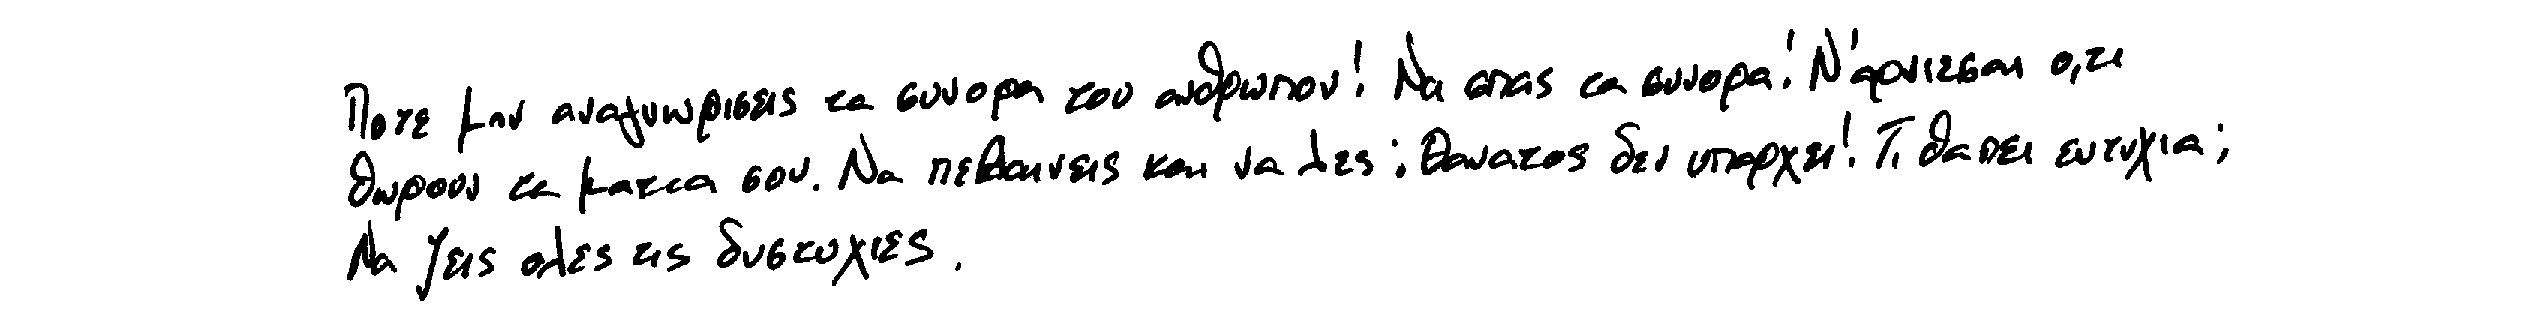 Ποτε μην αναγνωρισεις τα συνορα του ανθρωπου! Να σπας τα συνορα! Ν'αρνιεσαι ο,τι
θωρουν τα ματια σου. Να πεθαινεις και να λες: Θανατος δεν υπαρχει! Τι θα πει ευτυχια;
Να ζεις ολες τις δυστυχιες.